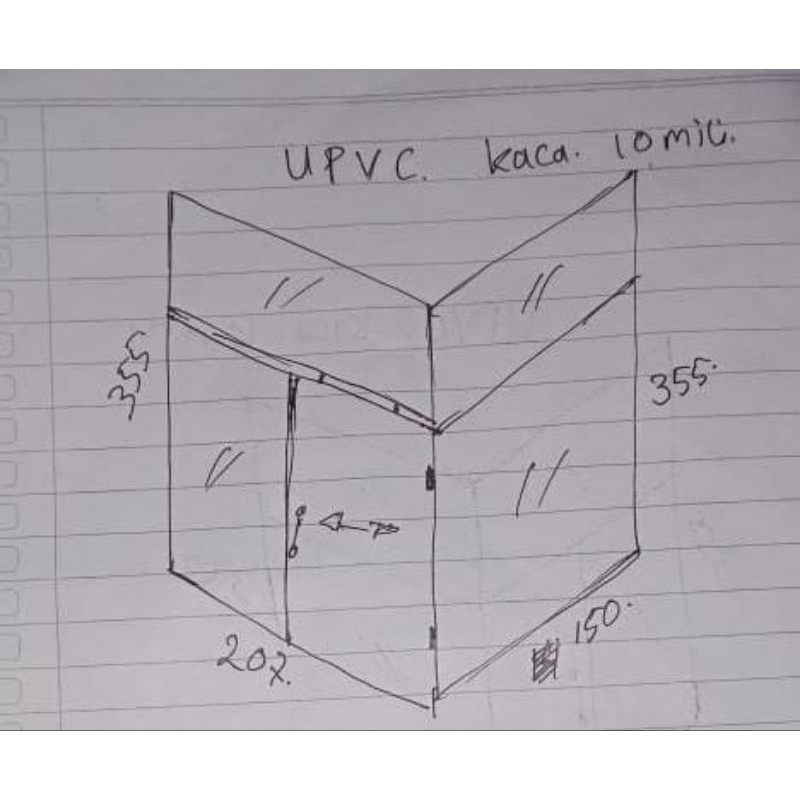 UPVC. kaca. 10 mili.
355
355.
207.
150.